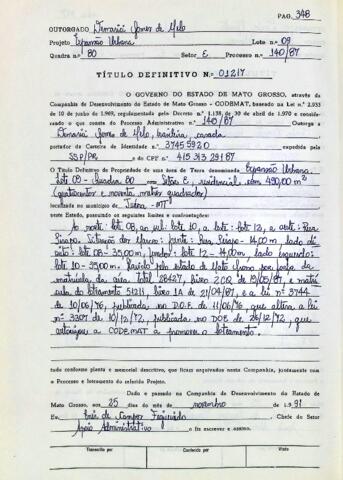 PAG. 348
OUTORGADO Demarici Gomes de Melo
Projeto Expansão Urbana Lote n.o 09
Quadra n.o 80 Setor E Processo n.o 140/87
TÍTULO DEFINITIVO N.o 01217
O GOVERNO DO ESTADO DE MATO GROSSO, através da
Companhia de Desenvolvimento do Estado de Mato Grosso - CODEMAT, baseado na Lei n.o 2.933
de 10 de junho de 1969, regulamentado pelo Decreto n.o 1.138, de 30 de abril de 1970 e considerando
o que consta do Processo Administrativo n.o 140/87 Outorga a
Demarici Gomes de Melo, brasileira, casada
portador da Carteira de Identidade n.o 3745592 0 expedida pela
SSP/PR e do CPF n.o 415.343.291 87
O Título Definitivo de Propriedade de uma área de Terra denominada Expansão Urbana.
Lote 09 - Quadra 80 - Setor E, residencial, com 490,00 m²
(quatrocentos e noventa metros quadrados)
localizada no município de - MT
neste Estado, passando os seguintes limites e confrontações:
Ao norte: lote 08, ao sul: lote 10, a leste: lote 12, a oeste: Rua
frente: Rua 14,00m lado di
reito: lote 08 - 35,00m, fundos: lote 12 - 14,00m lado esquerdo:
lote 10 - 35,00m. pelo estado de Mato Grosso por força da
matrícula da área total 28427, livro 2CQ de 19/05/87, e matrí
cula do loteamento 51211, livro 1A de 21/04/87, e a lei nº 3744
de 10/06/76, publicada no D.O.E. de 11/06/76, que altera a lei
nº 3307 de 18/12/72, publicada no DOE de 26/12/72, que
autorizou a CODEMAT a promover o loteamento.
tudo conforme planta e memorial descritivo, que ficam arquivados nesta Companhia, juntamente com
o Processo e loteamento do referido Projeto.
Dado e passado na Companhia de Desenvolvimento do Estado de
Mato Grosso, aos 25 dias do mês de novembro de 1.991
Eu, Inês de Campos Figueiredo Chefe do Setor
Apoio Administrativo o fiz escrever e assino.
Transcrito por Conferido por Visto